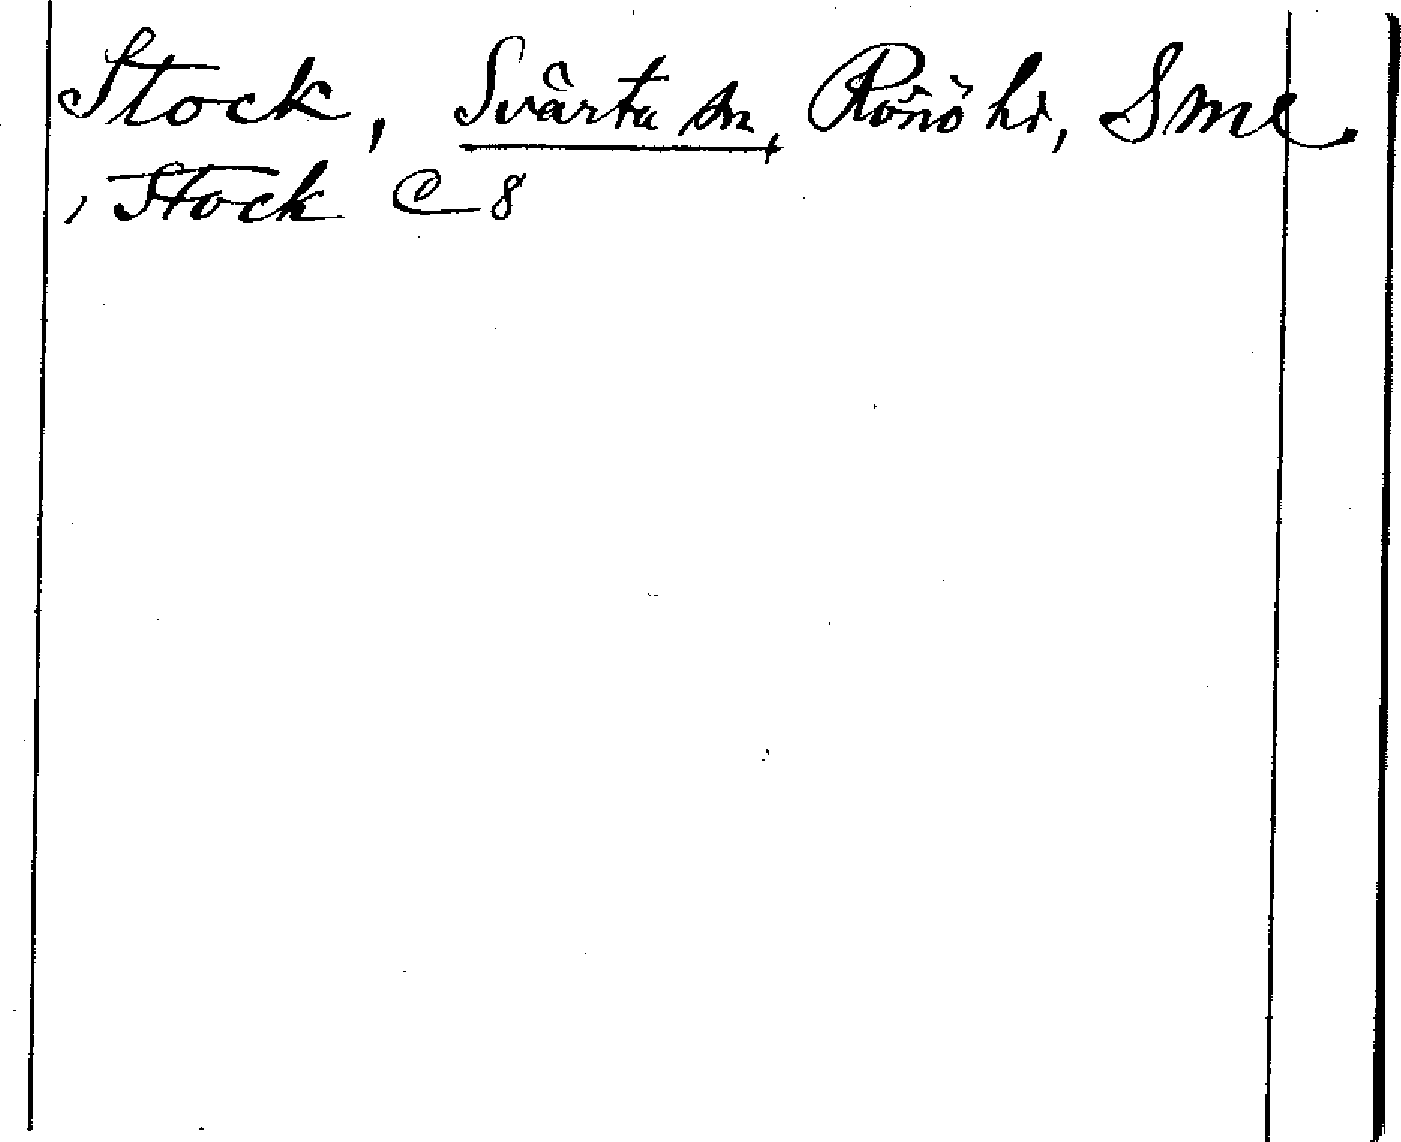 Stock, Svärta sn, Rönö hd, Sml.
, Stock C 8